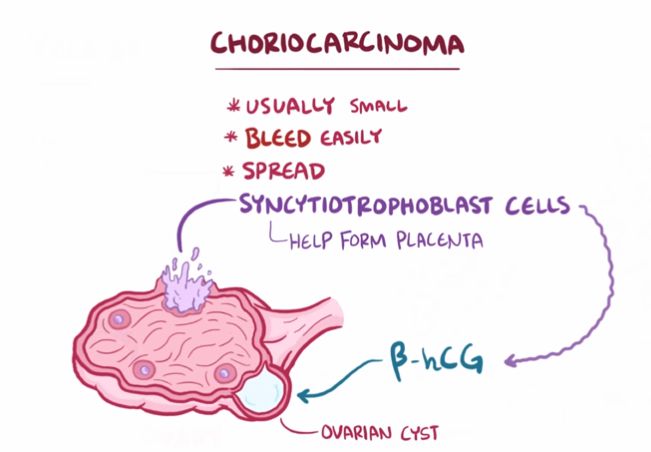 CHORIOCARCINOMA
* USUALLY SMALL
* BLEED EASILY
* SPREAD
SYNCYTIOTROPHOBLAST CELLS
HELP FORM PLACENTA
β-hCG
OVARIAN CYST